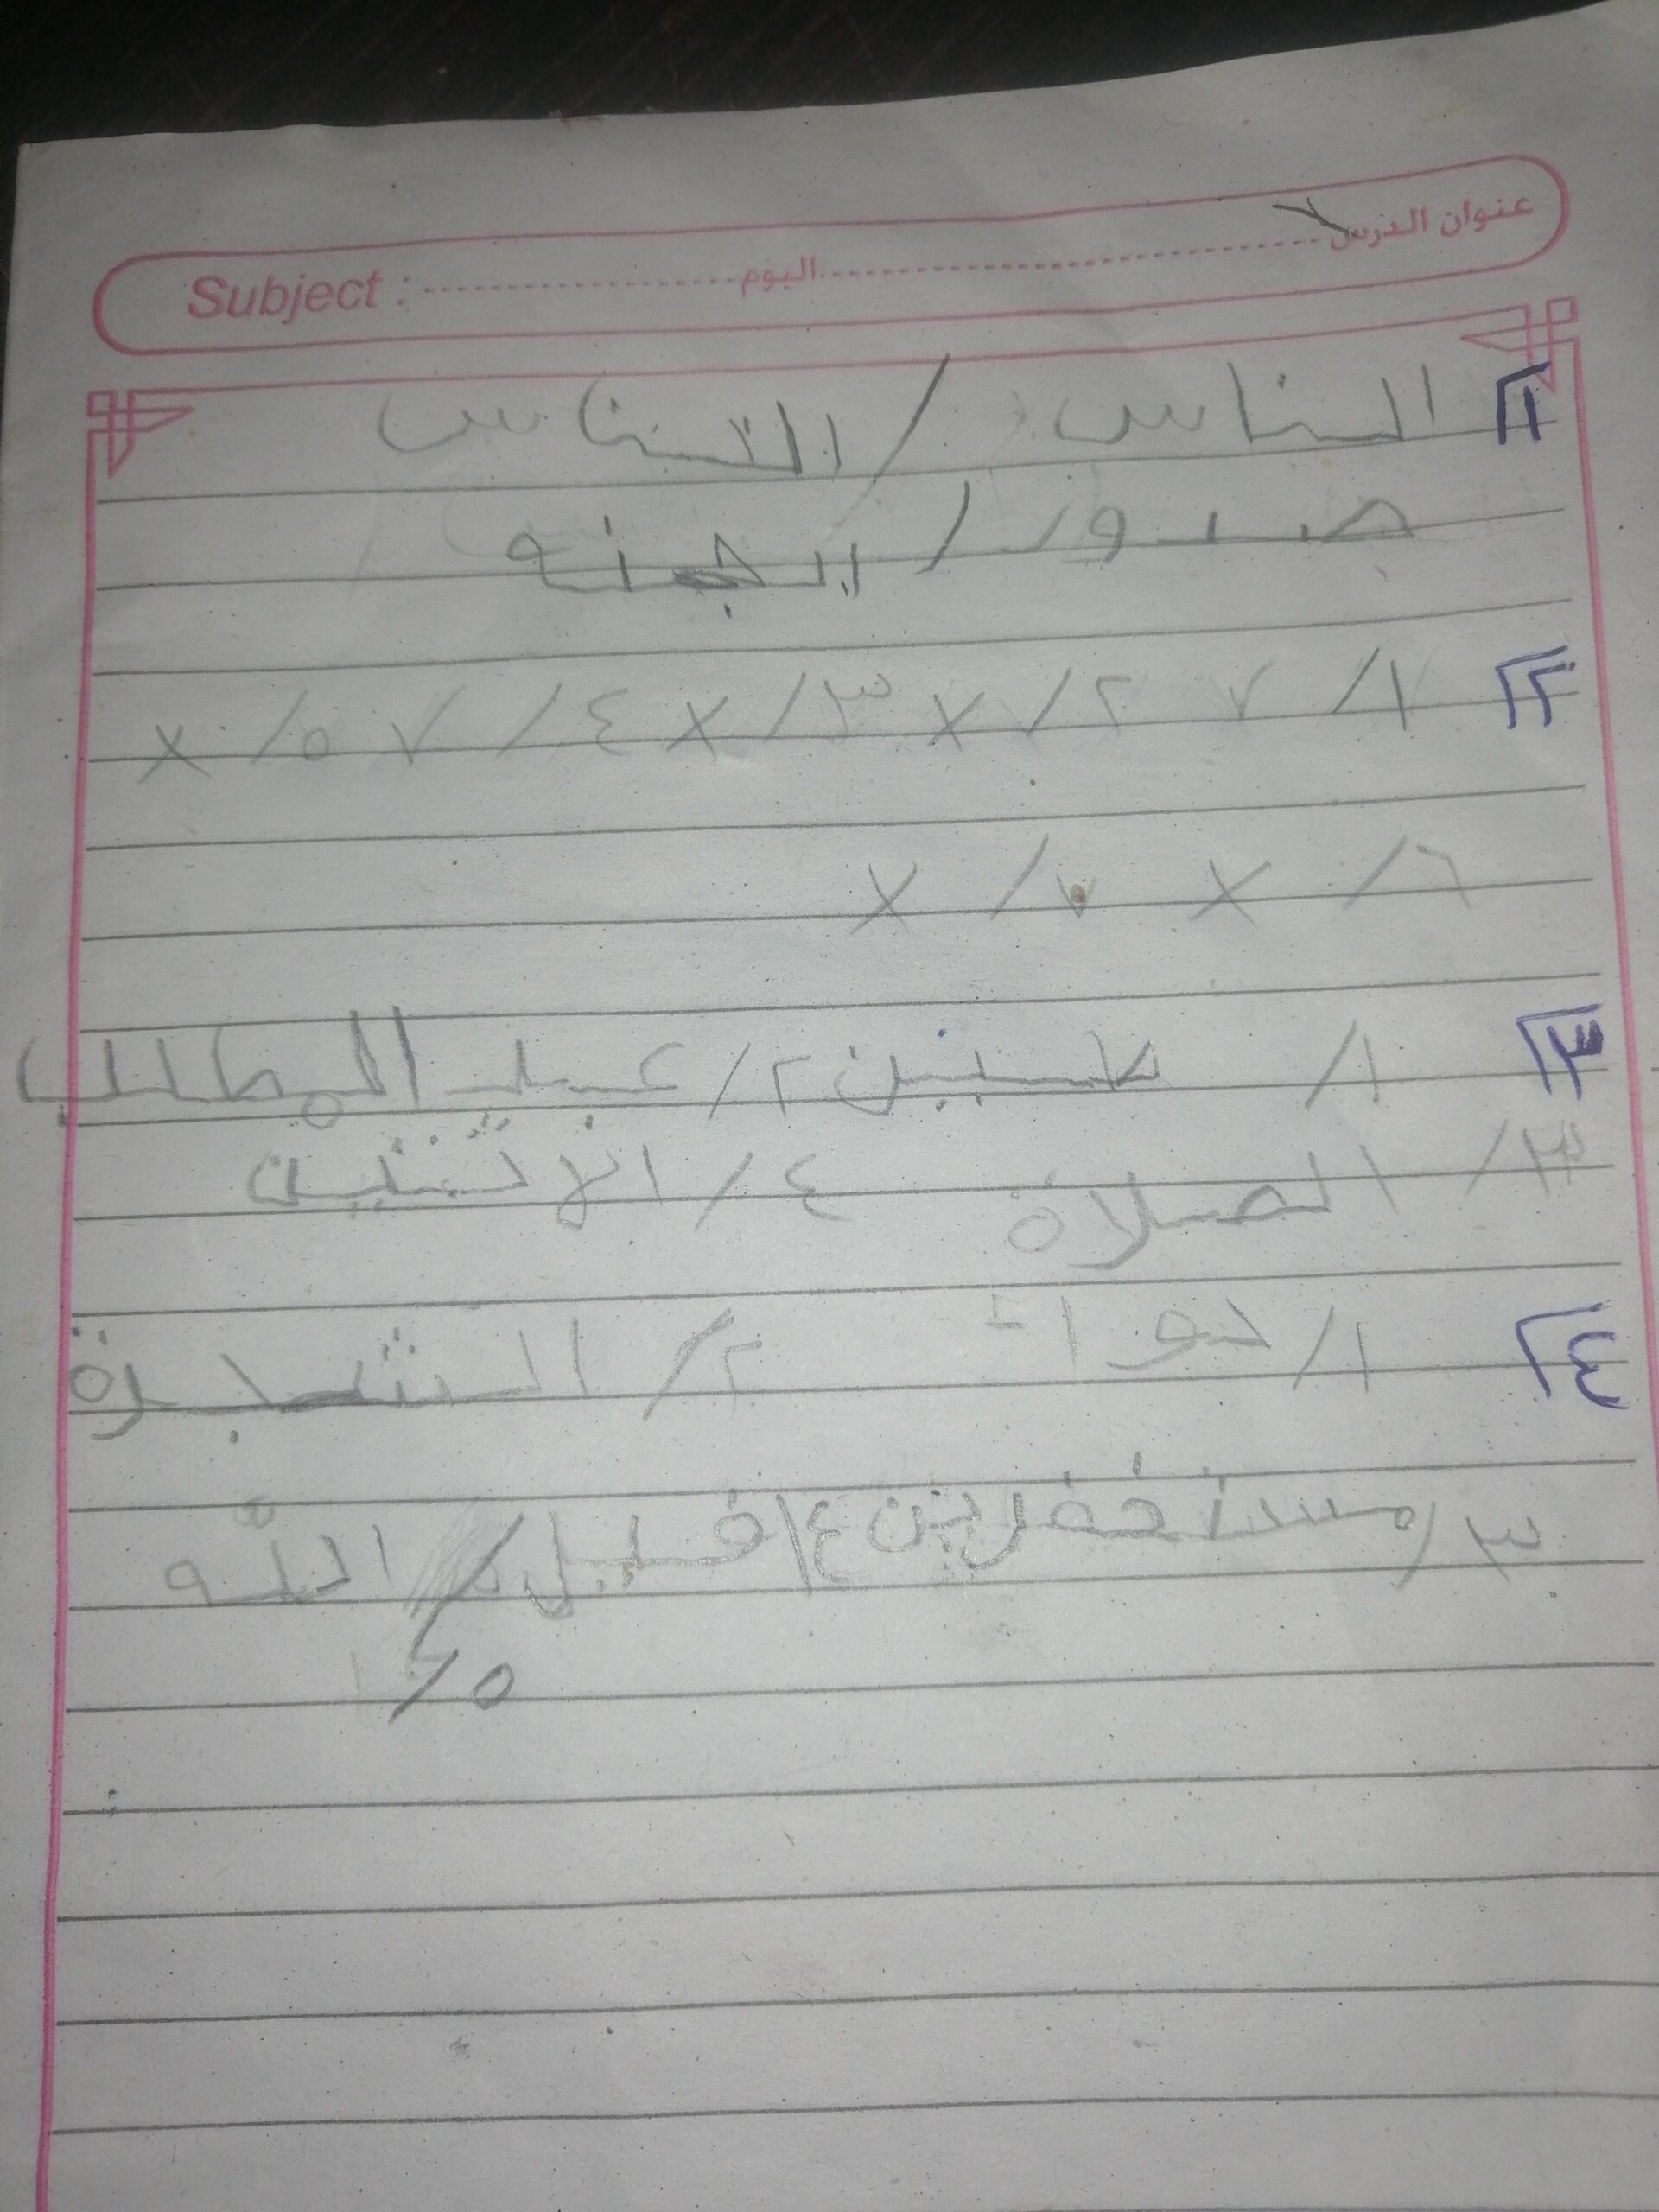 عنوان الدرس ........ اليوم ........ Subject :
١ الناس / الناس
صدور / الجنه
٢ ١/ ✓ ٢/ X ٣/ X ٤/ ✓ ٥/ X
٦/ X ٧/ X
٣ ١/ طسين ٢/ عبد المطلب
٣/ الصلاة ٤/ الاثنين
٤ ١/ حواء ٢/ الشجرة
٣/ مستغفرين ٤/ قبل / الله
٥/